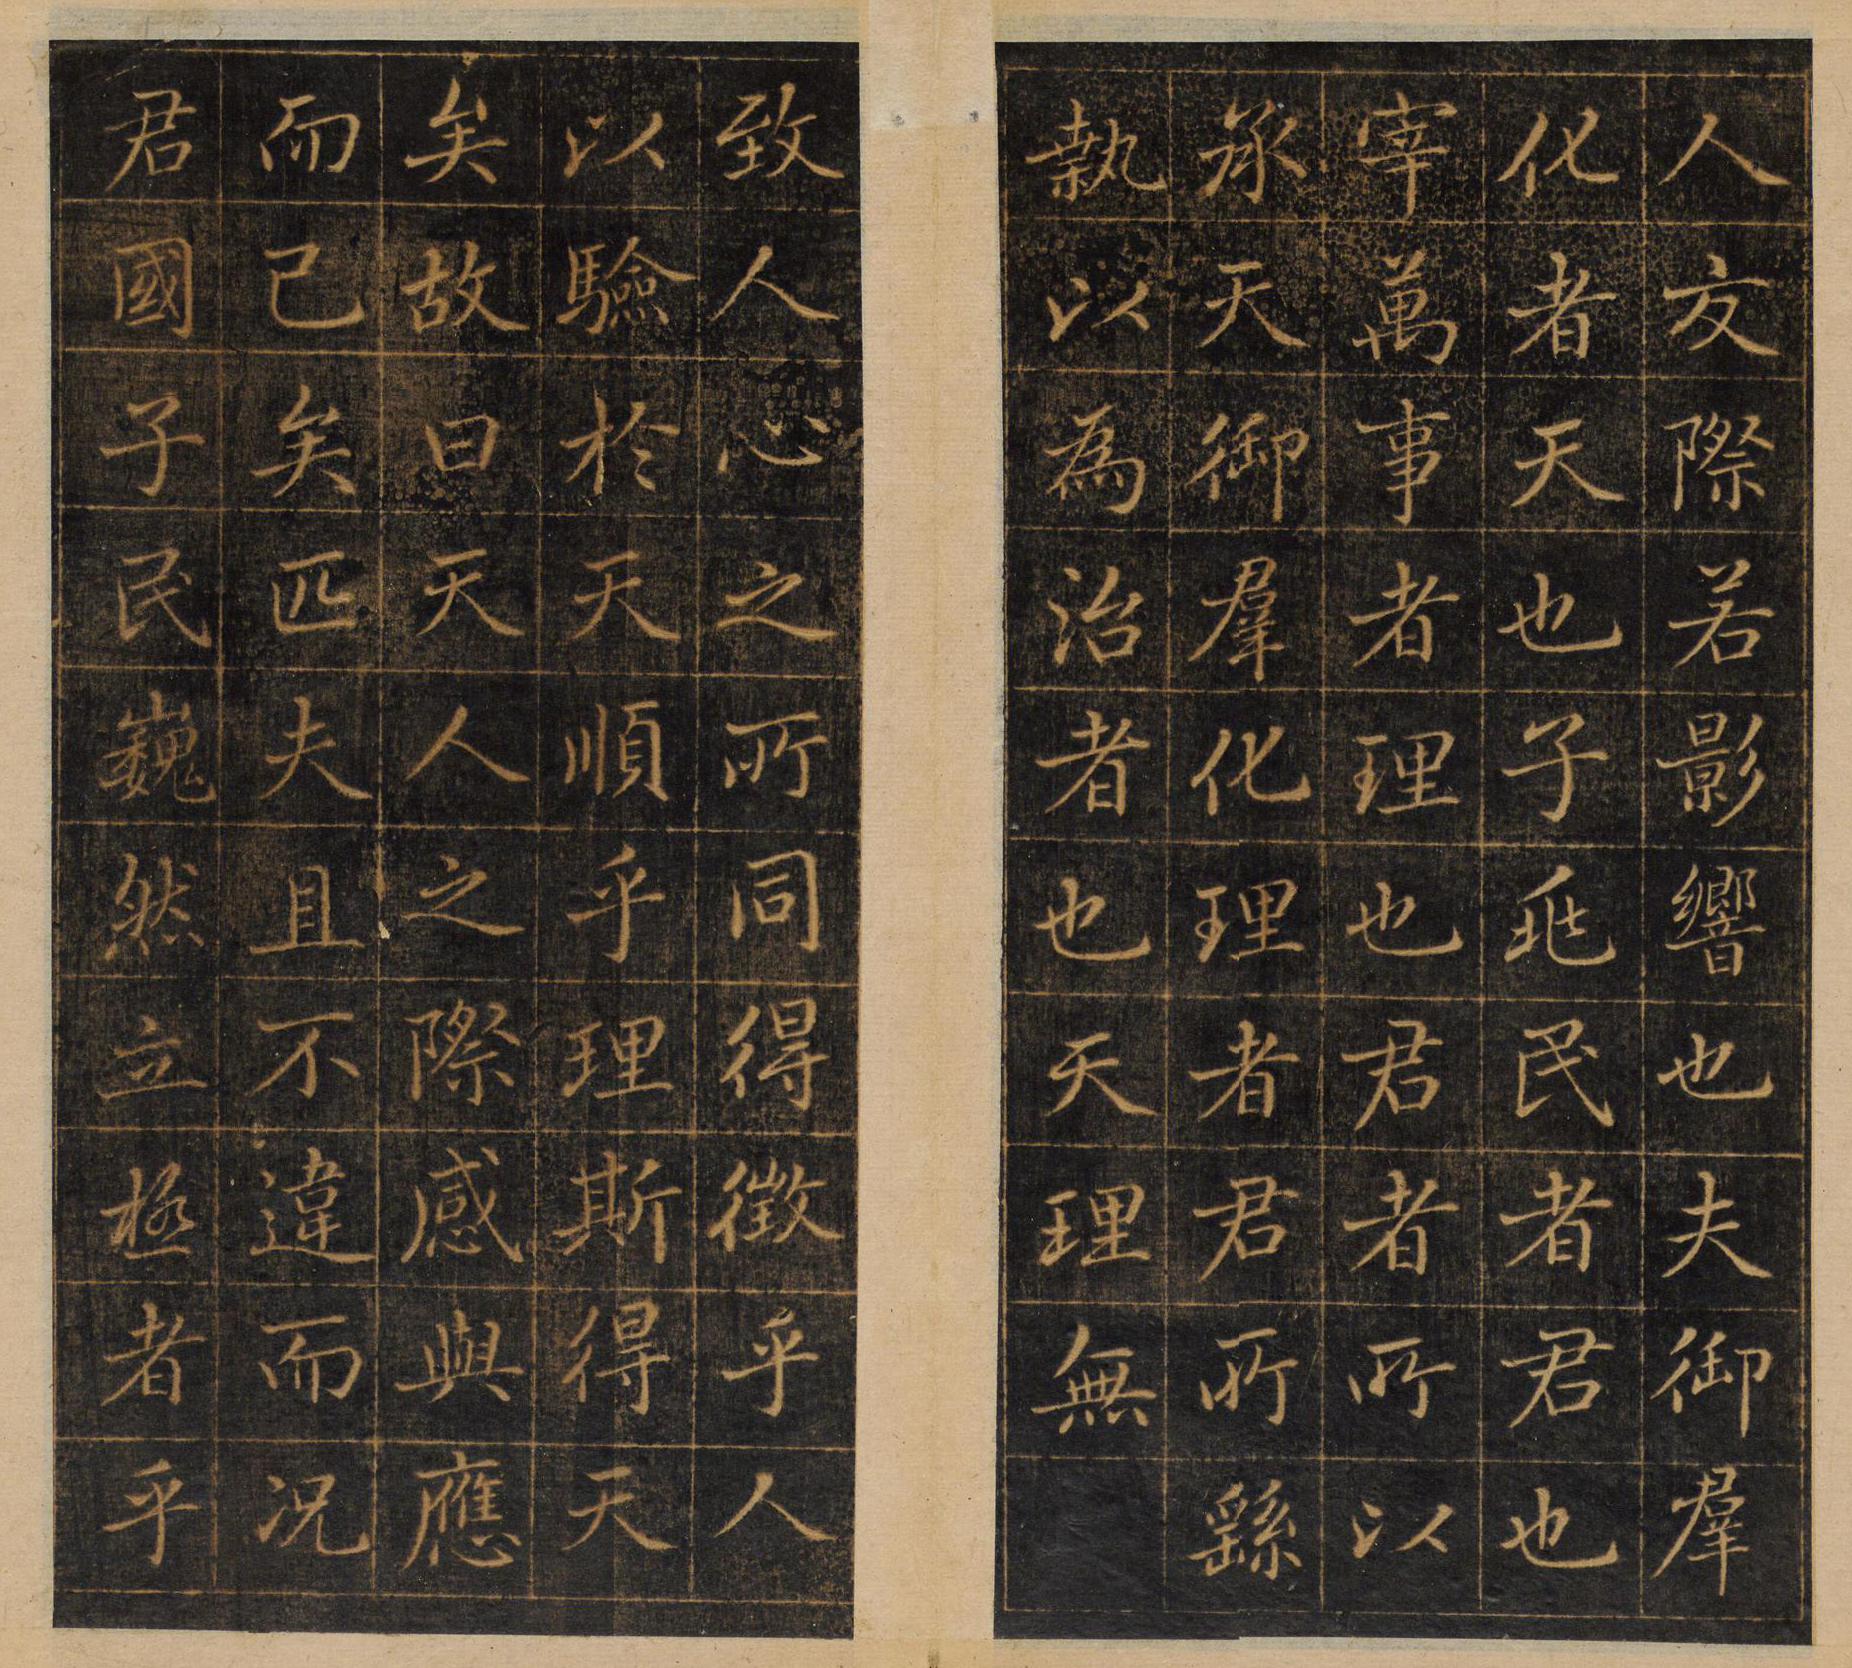 人交際若影響也夫御羣
化者天也子兆民者君也
宰萬事者理也君者所以
承天御羣化理者君所繇
執以為治者也天理無
致人心之所同得徵乎人
以驗於天順乎理斯得天
矣故曰天人之際感與應
而已矣匹夫且不違而况
君國子民巍然立極者乎